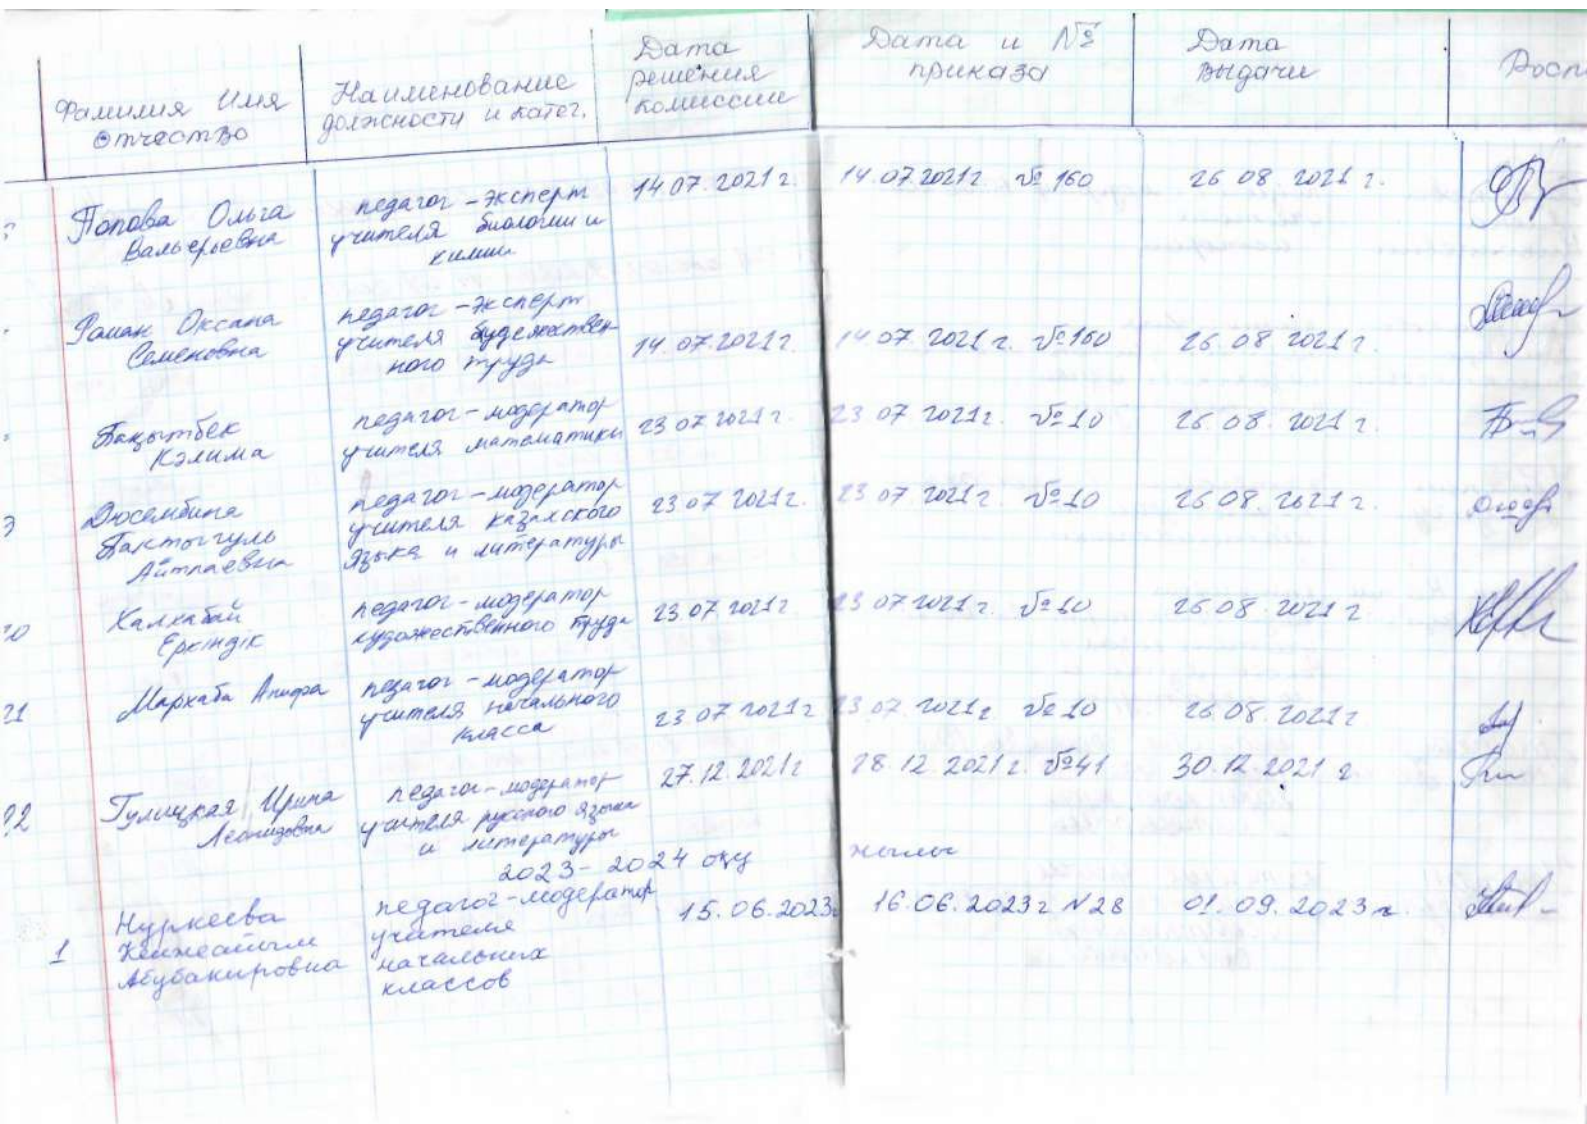 Фамилия Имя
Отчество
Наименование
должности и катег.
Дата
решения
комиссии
Дата и №
приказа
Дата
выдачи
Росп
Попова Ольга
Валерьевна
педагог-эксперт
учителя биологии и
химии
14.07.2021г.
14.07.2021г №160
26.08.2021г.
Роман Оксана
Семеновна
педагог-эксперт
учителя художествен-
ного труда
14.07.2021г.
14.07.2021г. №160
26.08.2021г.
Бақытбек
Кәлима
педагог-модератор
учителя математики
23.07.2021г.
23.07.2021г. №10
26.08.2021г.
Дюсембина
Бактыгуль
Айтпаевна
педагог-модератор
учителя казахского
языка и литературы
23.07.2021г.
23.07.2021г. №10
26.08.2021г.
20
Халхабай
Еркіндік
педагог-модератор
художественного труда
23.07.2021г
23.07.2021г. №10
26.08.2021г
21
Мархаба Анифа
педагог-модератор
учителя начального
класса
23.07.2021г
23.07.2021г №10
26.08.2021г
22
Гулицкая Ирина
Леонидовна
педагог-модератор
учителя русского языка
и литературы
27.12.2021г
28.12.2021г. №41
30.12.2021г
2023-2024 оқу жылы
1
Нуркеева
Кенжеайым
Абубакировна
педагог-модератор
учителя
начальных
классов
15.06.2023г
16.06.2023г №28
01.09.2023г.